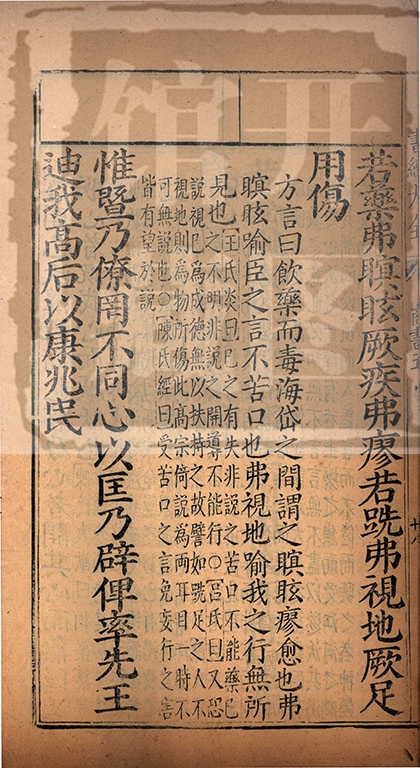 若藥弗瞑眩厥疾弗瘳若跣弗視地厥足
用傷
方言曰飲藥而毒海岱之間謂之瞑眩瘳愈也弗
瞑眩喻臣之言不苦口也弗視地喻我之行無所
見也
王氏炎曰已之有失非說之苦口不能藥已
之不明非說之開導不能行○呂氏曰又恐
說視已為成德無以扶持之故譬如跣足之人不
視地則為物所傷此高宗倚說為兩耳目一時不
可無說也○陳氏經曰受苦口之言免妄行之害
皆有望於說
惟暨乃僚罔不同心以匡乃辟俾率先王
迪我高后以康兆民